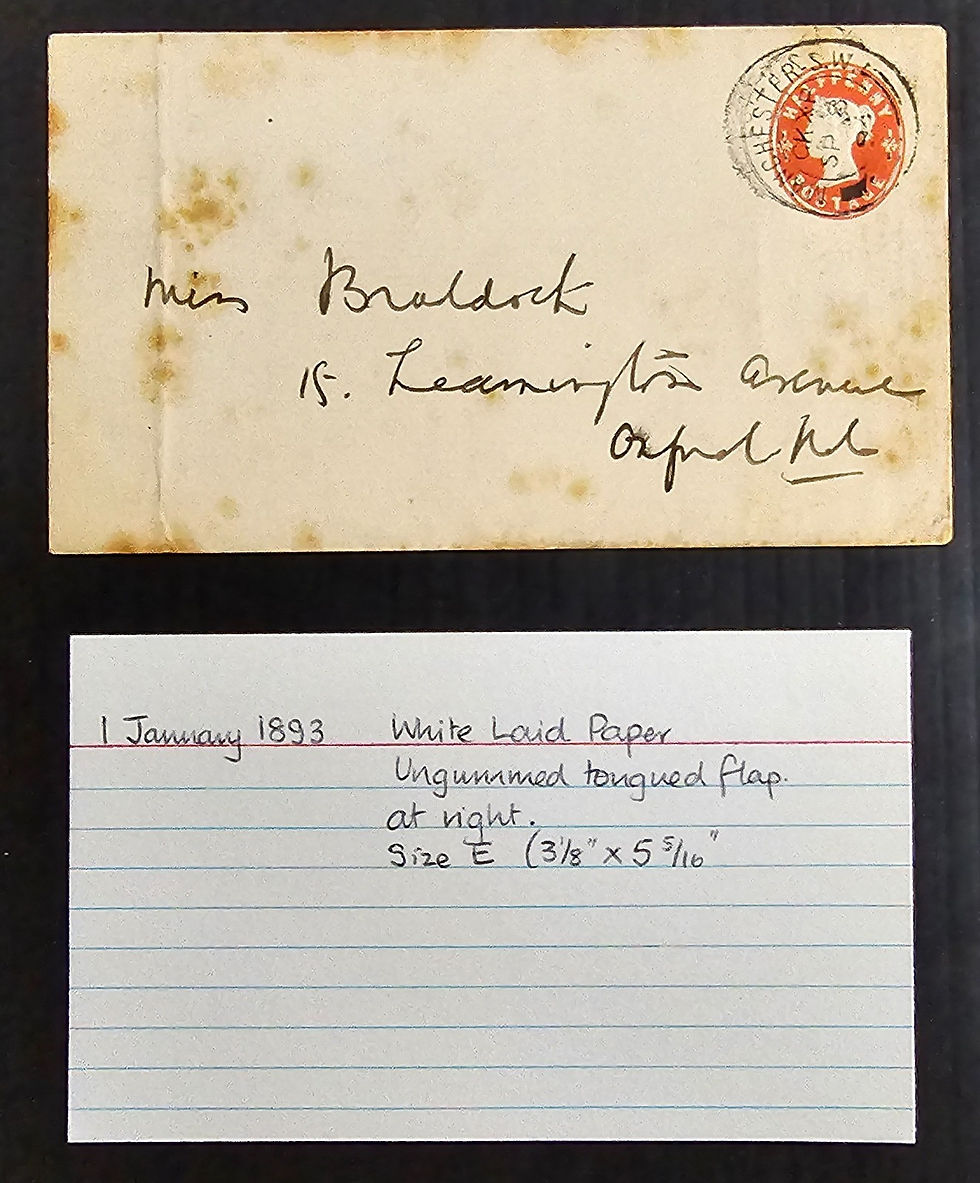 HALFPENNY
POSTAGE
CHESTER S.W.
CK XP
SP
Miss Braddock
15. Leamington Avenue
Oxford Rd
1 January 1893 White Laid Paper
Ungummed tongued flap.
at right.
Size E (3 1/8" x 5 5/16"